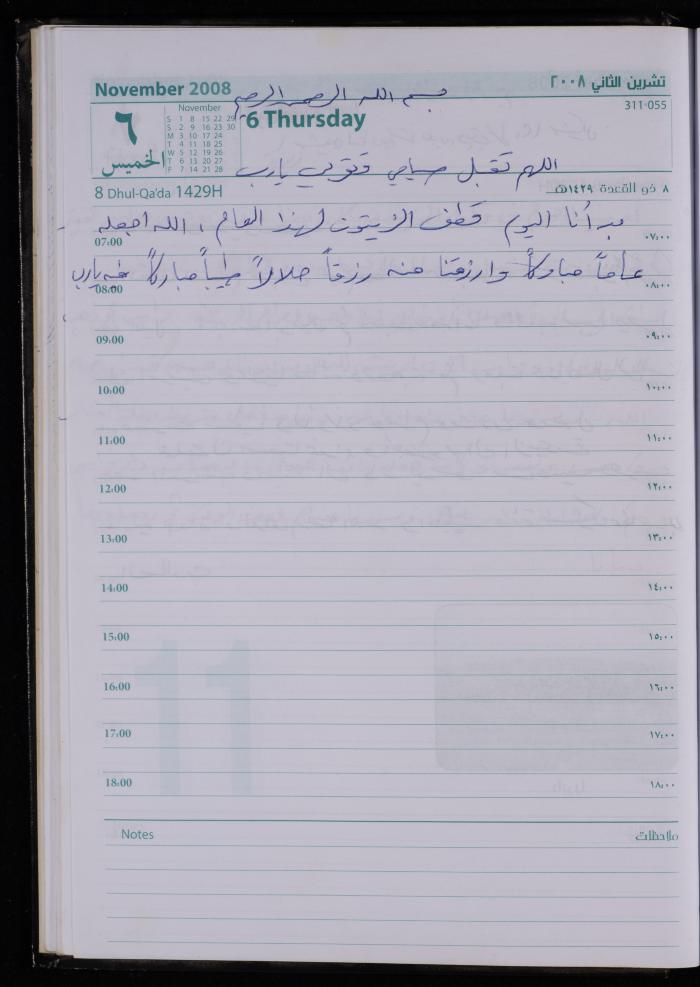 November 2008 تشرين الثاني ٢٠٠٨
بسم الله الرحمن الرحيم
311-055
November
S 1 8 15 22 29
S 2 9 16 23 30
M 3 10 17 24
T 4 11 18 25
W 5 12 19 26
T 6 13 20 27
F 7 14 21 28
٦
الخميس
6 Thursday
اللهم تقبل صيامي وتقوى يا رب
8 Dhul-Qa'da 1429H ٨ ذو القعدة ١٤٢٩هـ
بدأنا اليوم قطف الزيتون لهذا العام ، الله اجعله
07:00 ٠٧:٠٠
عاماً مباركاً وارزقنا منه رزقاً حلالاً طيباً مباركاً فيه يا رب
08:00 ٠٨:٠٠
09:00 ٠٩:٠٠
10:00 ١٠:٠٠
11:00 ١١:٠٠
12:00 ١٢:٠٠
13:00 ١٣:٠٠
14:00 ١٤:٠٠
15:00 ١٥:٠٠
16:00 ١٦:٠٠
17:00 ١٧:٠٠
18:00 ١٨:٠٠
Notes ملاحظات